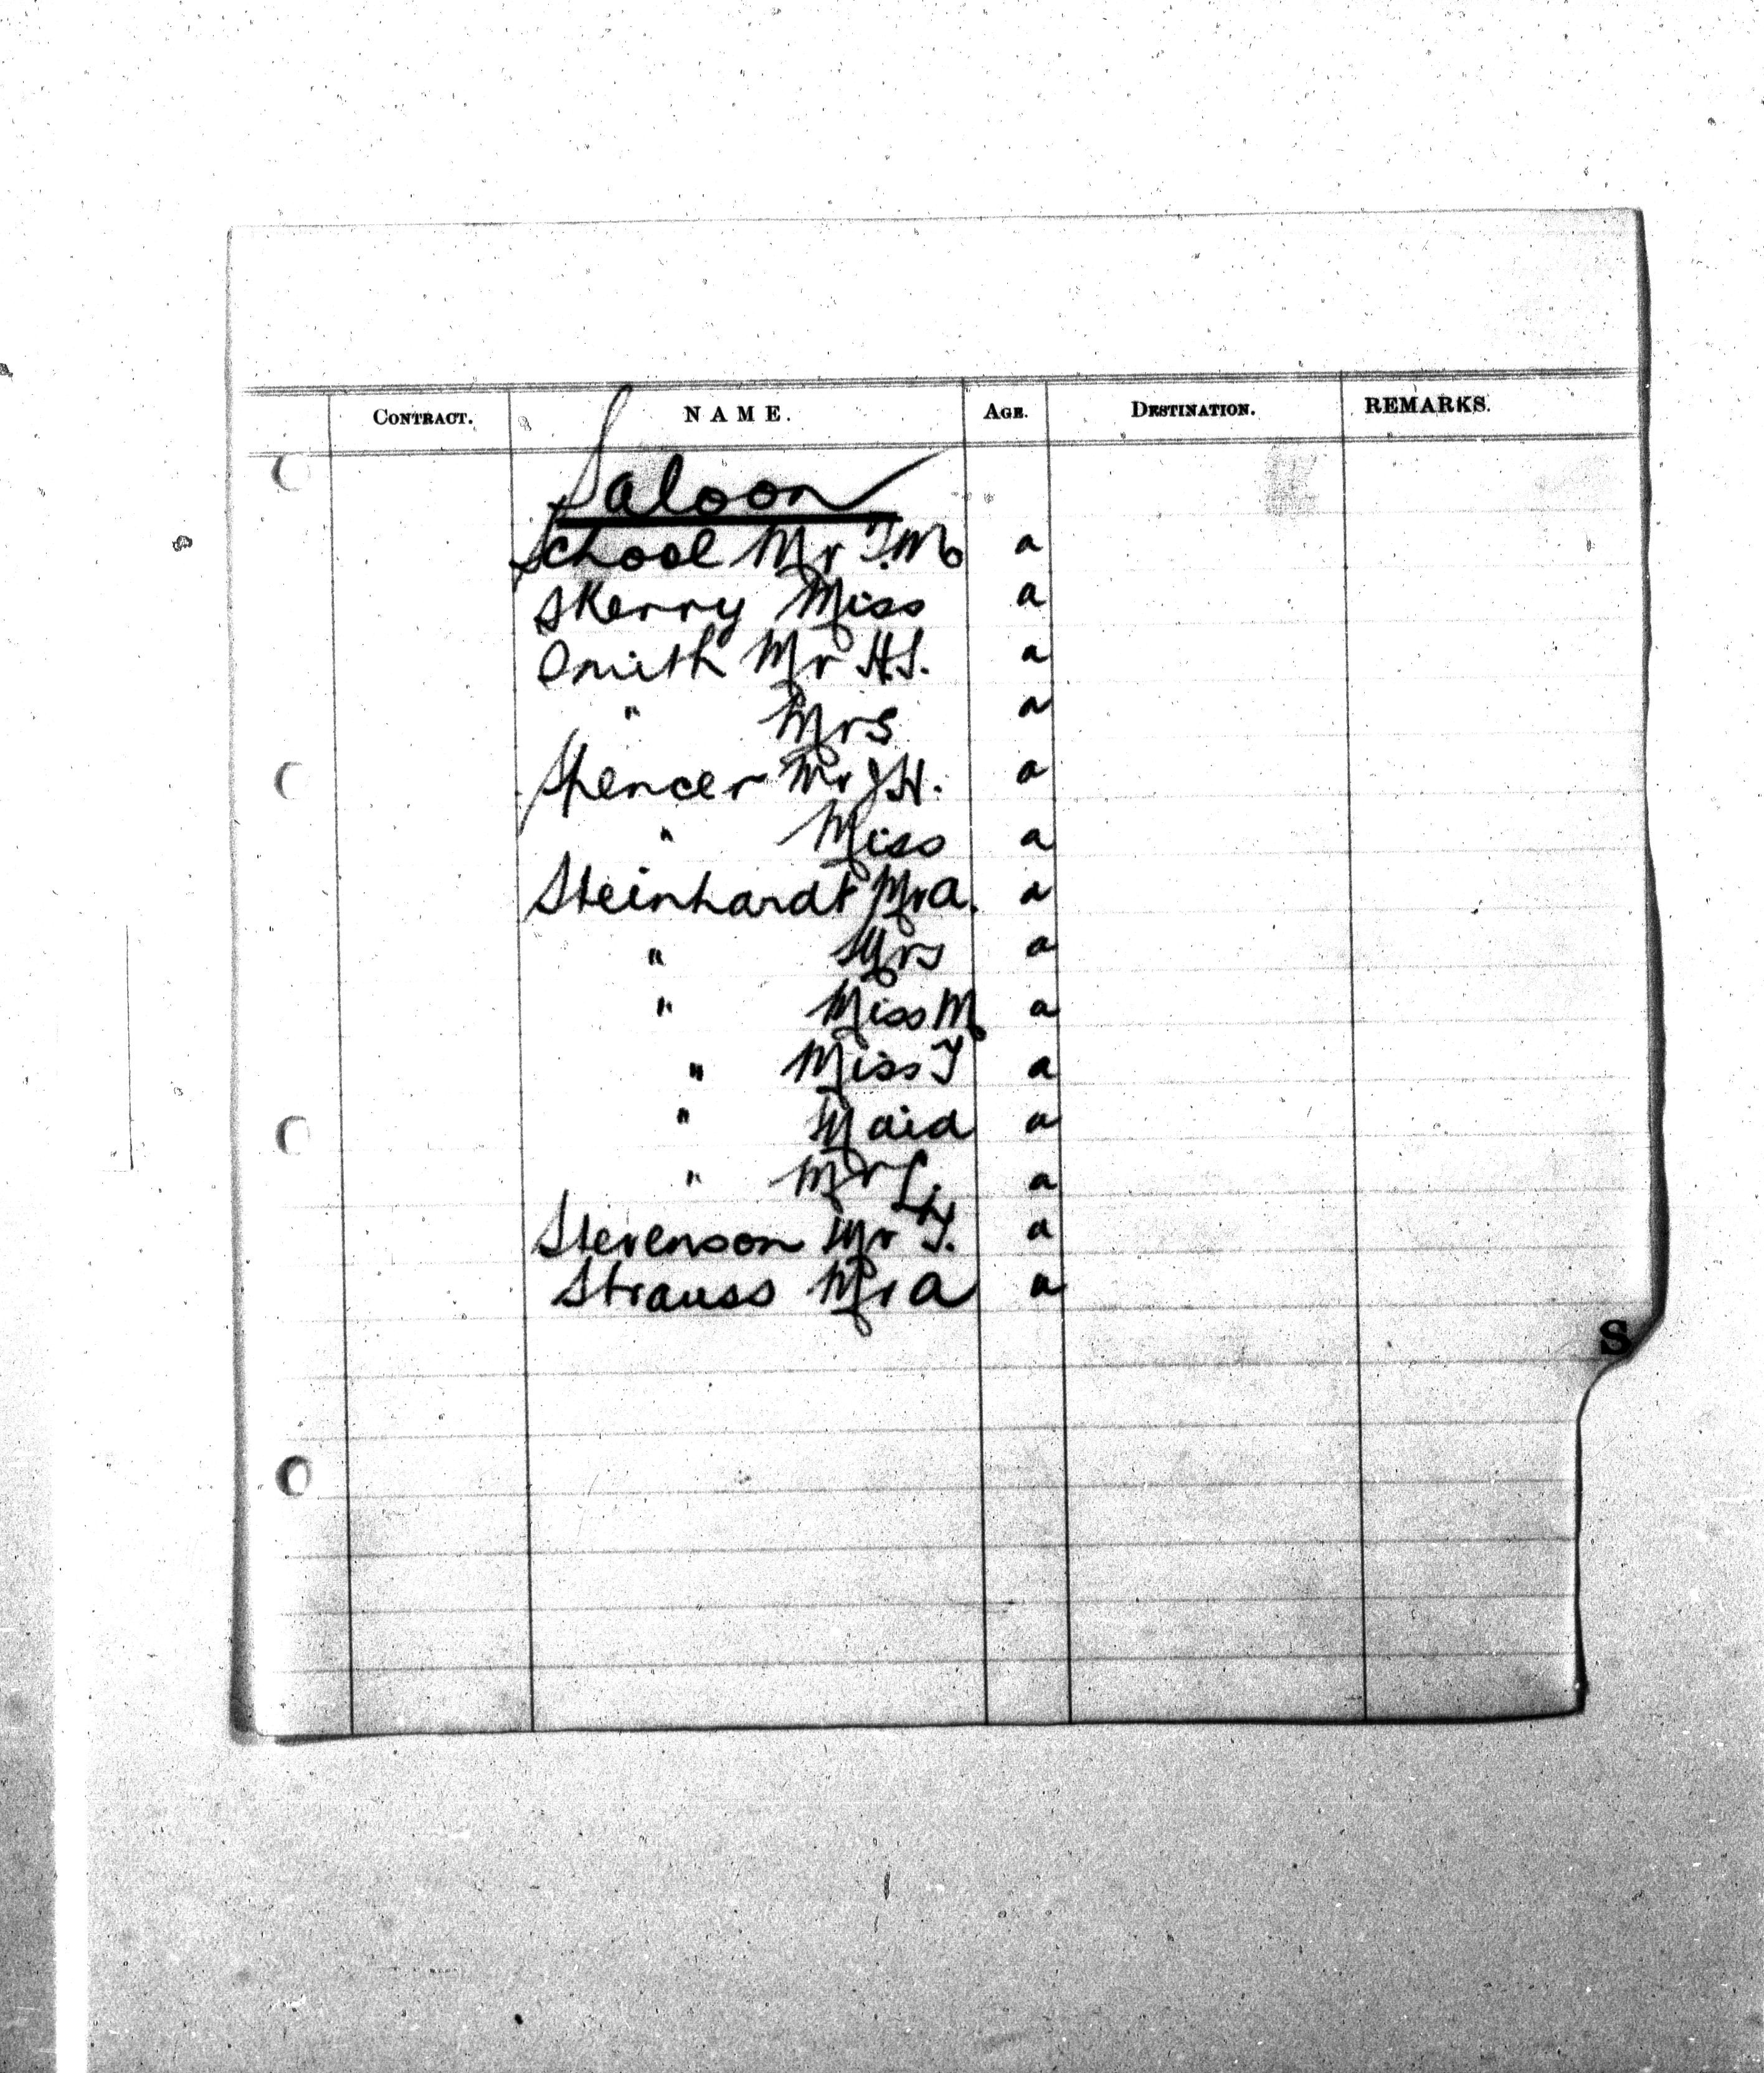 CONTRACT. NAME. AGE. DESTINATION. REMARKS.
Saloon
School Mr T.M. a
Skerry Miss a
Smith Mr H.S. a
" Mrs a
Spencer Mr J.H. a
" Miss a
Steinhardt Mr A. a
" Mrs a
" Miss M a
" Miss T a
" Maid a
" Mr L. a
Stevenson Mr T. a
Strauss Mr A a
S